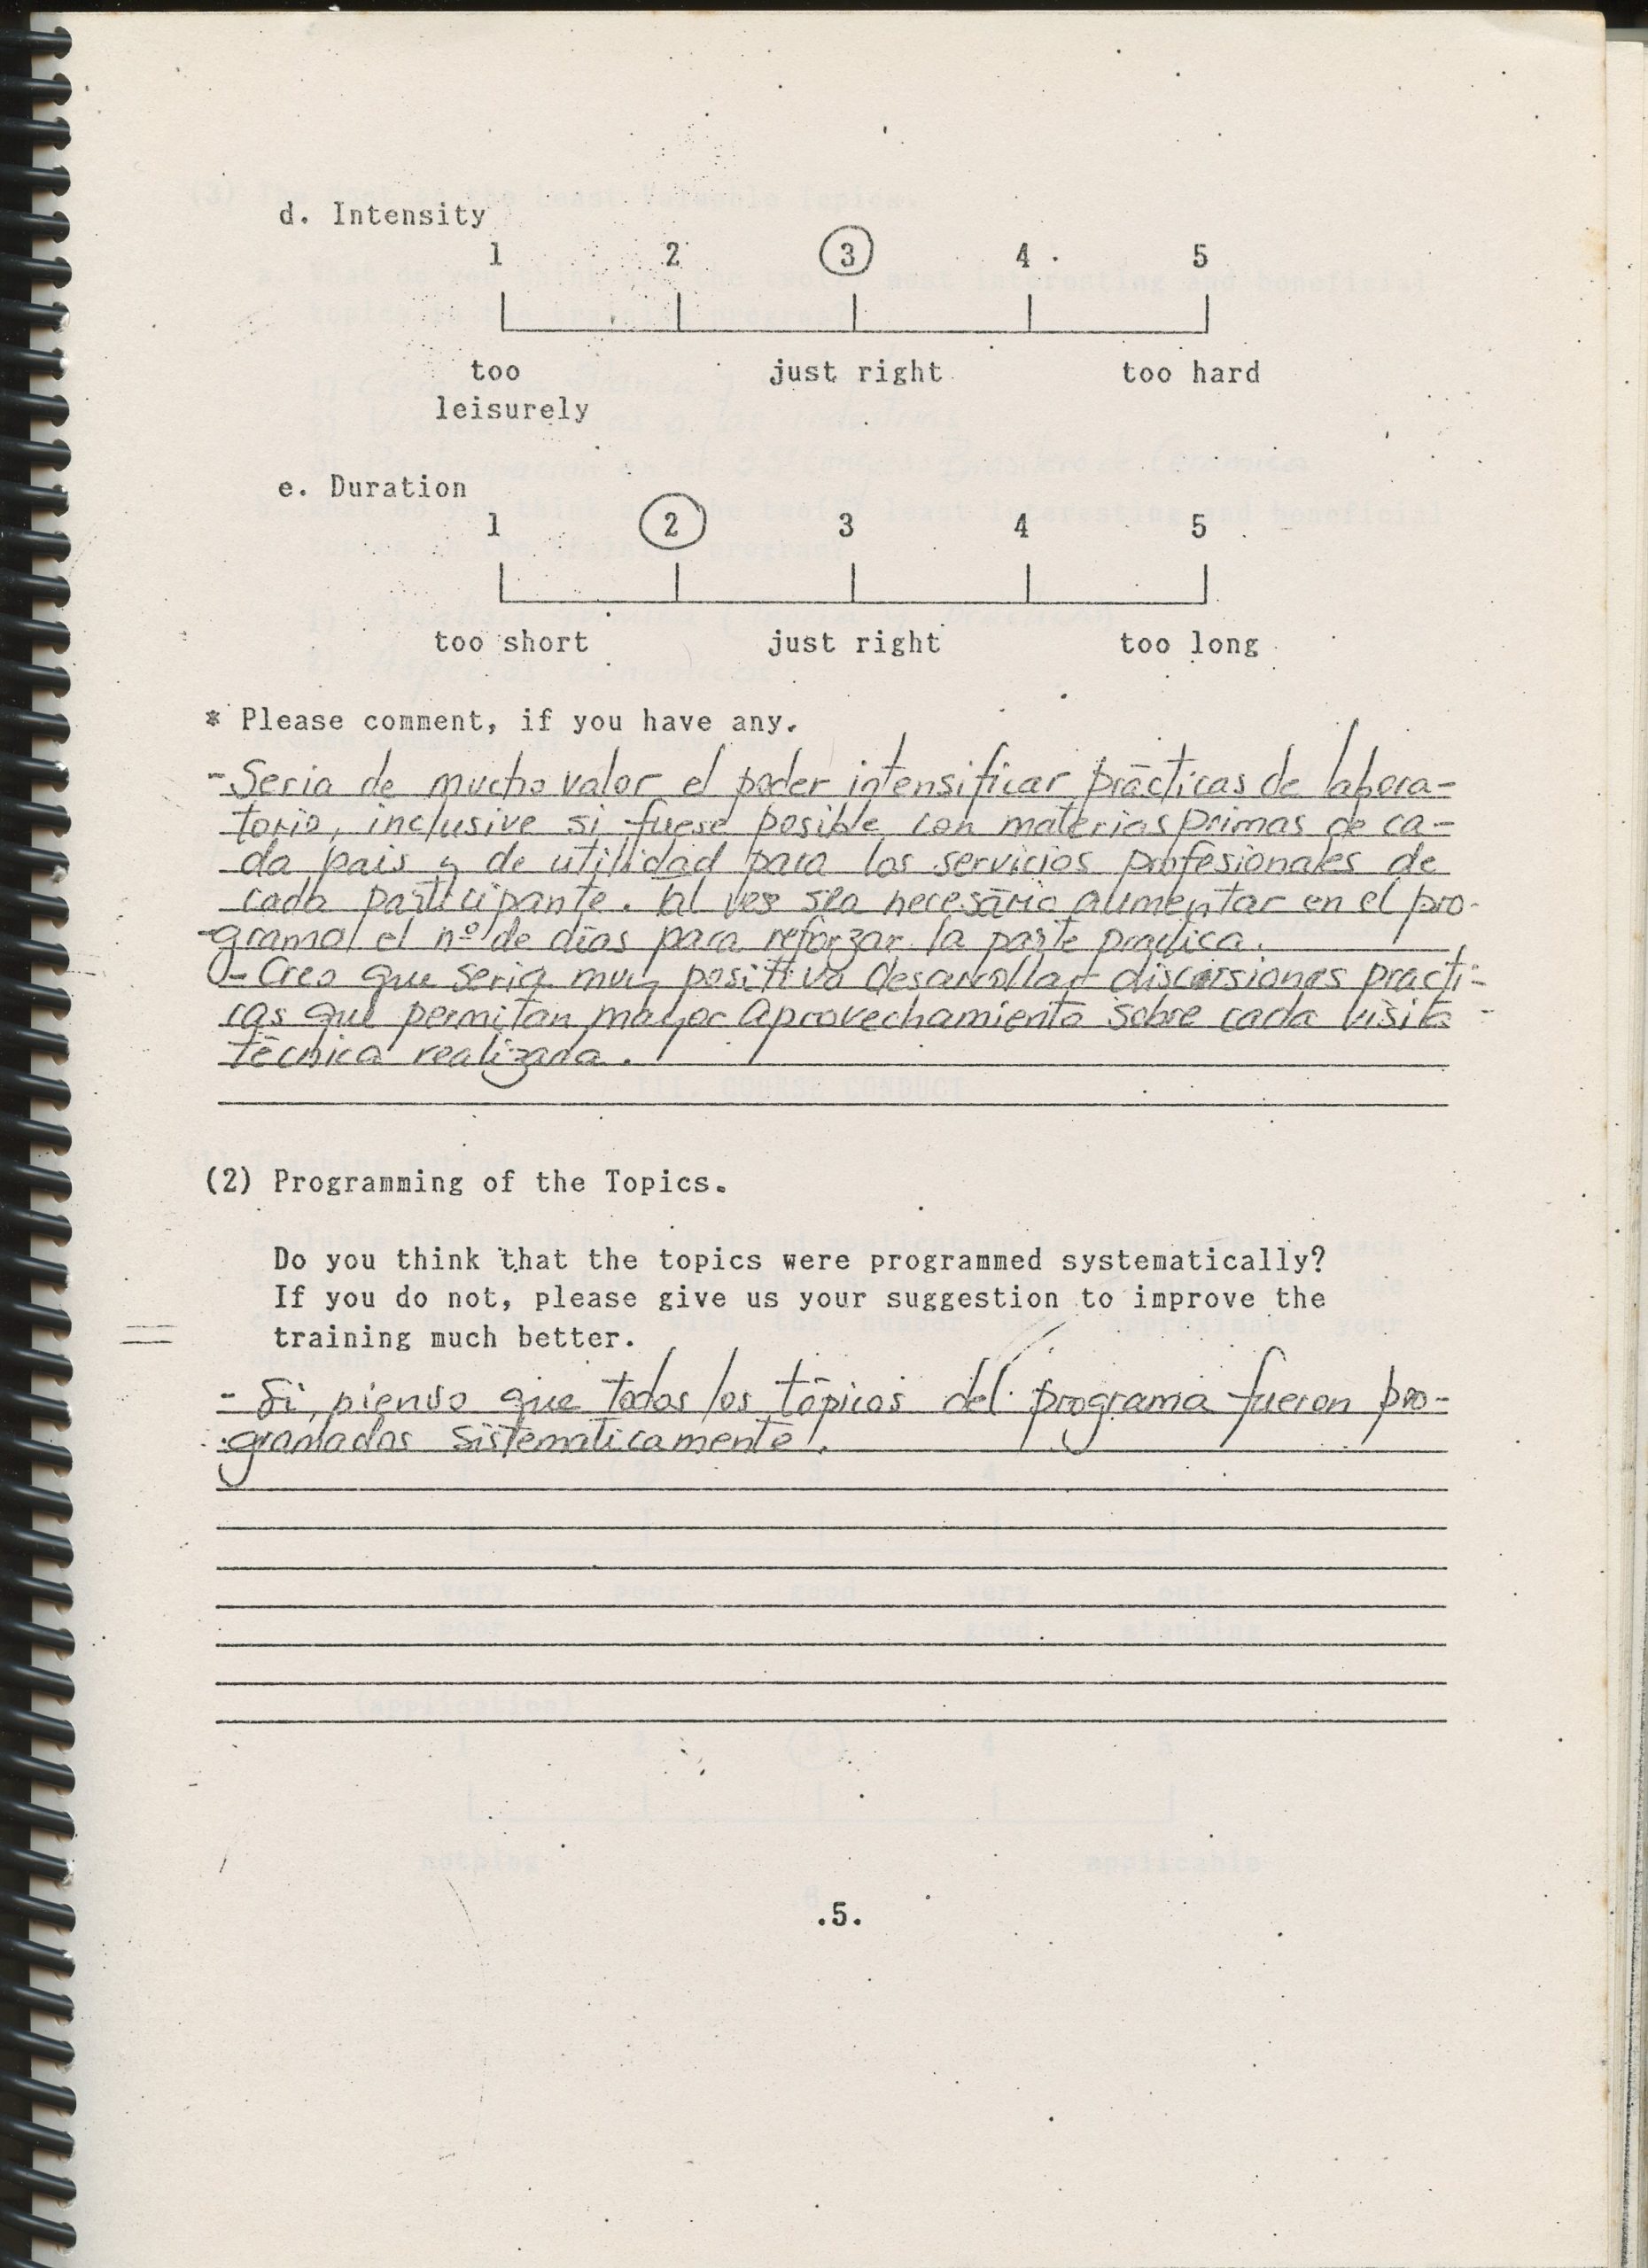 d. Intensity
1 2 3 4 5
too just right too hard
leisurely
e. Duration
1 2 3 4 5
too short just right too long
* Please comment, if you have any.
- Seria de mucho valor el poder intensificar prácticas de labora-
torio, inclusive si fuese posible con materias primas de ca-
da pais y de utilidad para los servicios profesionales de
cada participante. Tal vez sea necesário aumentar en el pro-
grama el nº de dias para reforzar la parte practica.
- Creo que seria muy positivo desarrollar discursiones practi-
cas que permitan mayor aprovechamiento sobre cada visita
técnica realizada.
(2) Programming of the Topics.
Do you think that the topics were programmed systematically?
If you do not, please give us your suggestion to improve the
training much better.
- Si, pienso que todos los tópicos del programa fueron pro-
gramados sistematicamente.
.5.